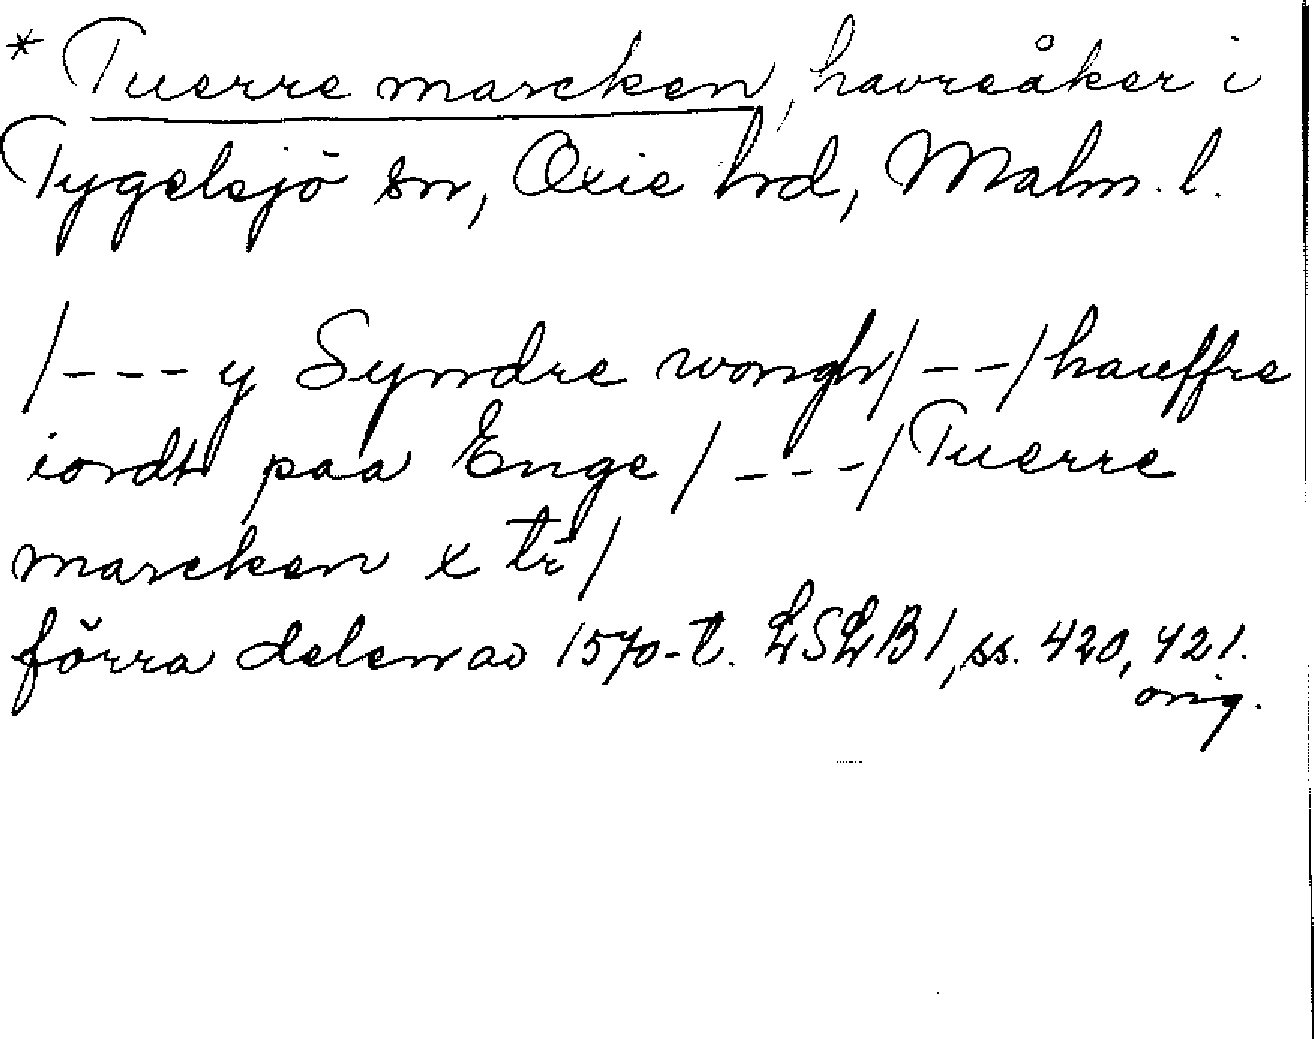 * Tuerre marcken, havreåker i
Tygelsjö sn, Oxie hrd, Malm. l.
/--- y Syndre wongh/ --/ hauffre
iordh paa Enge / ---/ Tuerre
marcken x tr /
förra delen av 1570-t. LSLB1, ss. 420, 421.
orig.